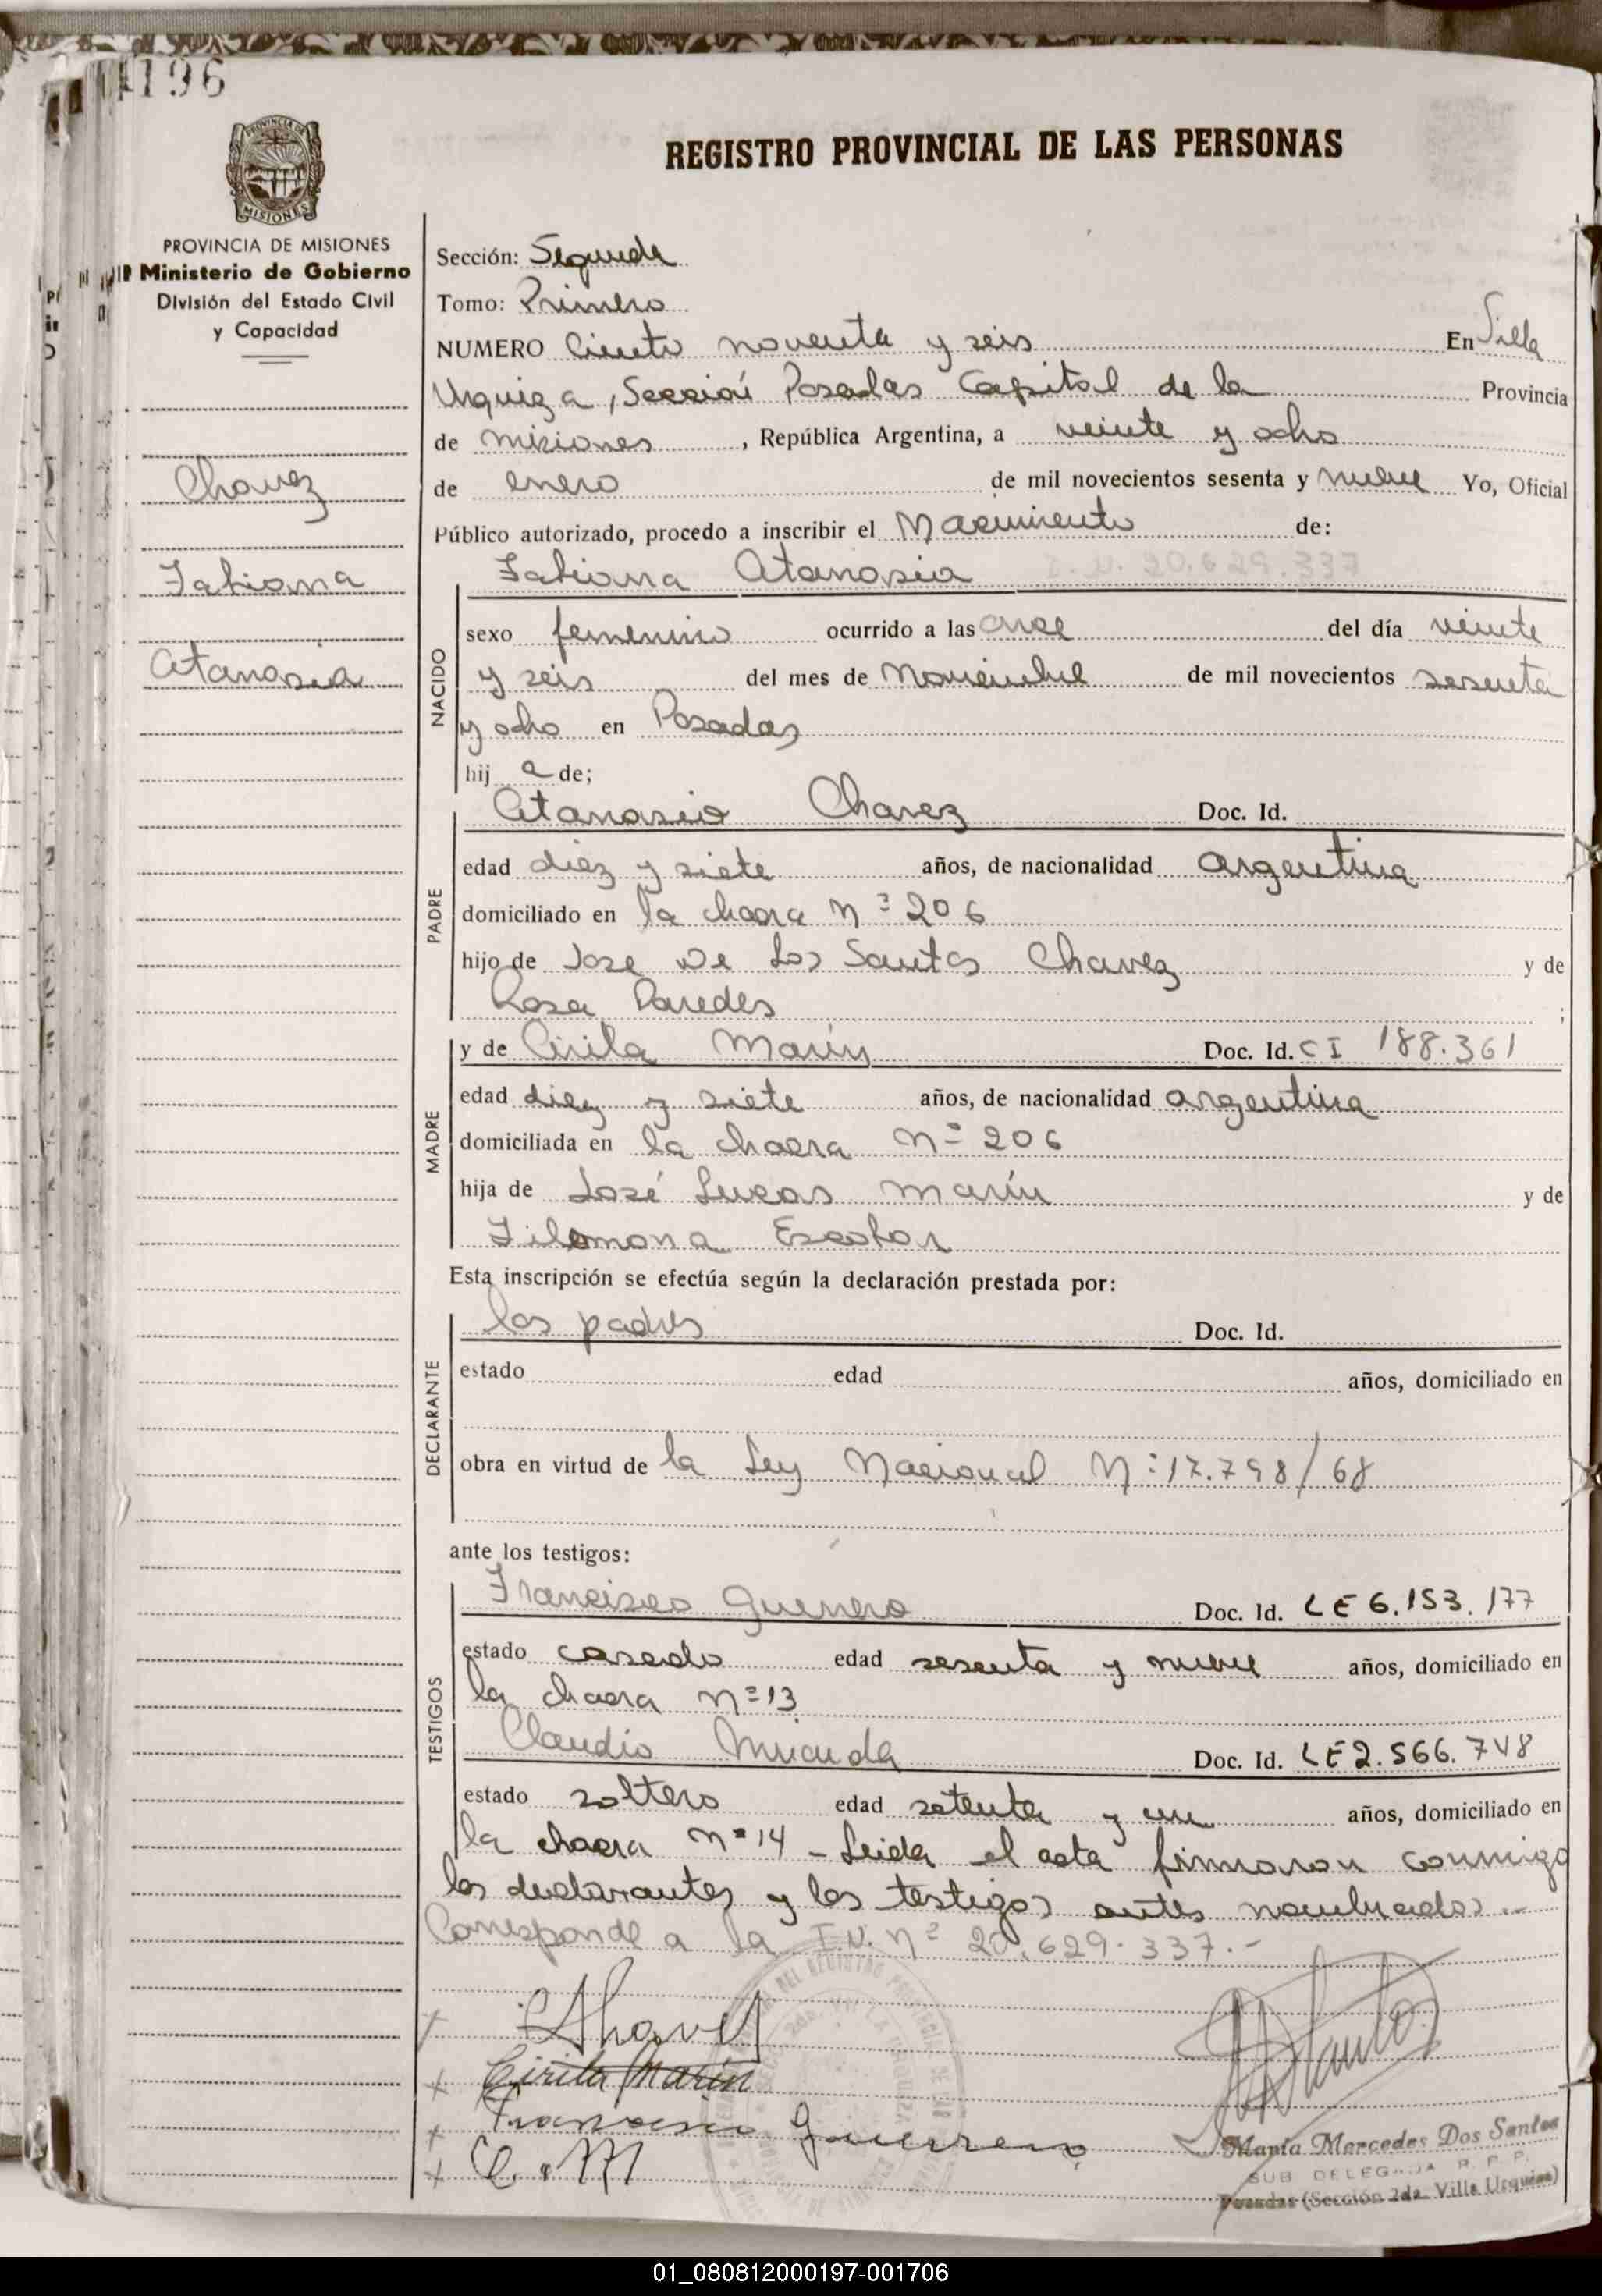 196
PROVINCIA DE
MISIONES
REGISTRO PROVINCIAL DE LAS PERSONAS
PROVINCIA DE MISIONES
Ministerio de Gobierno
División del Estado Civil
y Capacidad
Chavez
Fabiana
Atanasia
Sección: Segunda
Tomo: Primero
NUMERO Ciento noventa y seis En Villa
Urquiza, Sección Posadas Capital de la Provincia
de misiones, República Argentina, a veinte y ocho
de enero de mil novecientos sesenta y nueve Yo, Oficial
Público autorizado, procedo a inscribir el Nacimiento de:
Fabiana Atanasia I.N. 20.629.337
NACIDO
sexo femenino ocurrido a las once del día veinte
y seis del mes de Noviembre de mil novecientos sesenta
y ocho en Posadas
hij a de;
PADRE
Atanasio Chavez Doc. Id.
edad diez y siete años, de nacionalidad argentina
domiciliado en la chacra Nº 206
hijo de Jose De Los Santos Chavez y de
Rosa Paredes ;
MADRE
y de Cirila Marin Doc. Id. CI 188.361
edad diez y siete años, de nacionalidad argentina
domiciliada en la chacra Nº 206
hija de José Lucas Marín y de
Filomona Escobar
Esta inscripción se efectúa según la declaración prestada por:
DECLARANTE
los padres Doc. Id.
estado edad años, domiciliado en
obra en virtud de la Ley Nacional Nº 17.798/68
ante los testigos:
TESTIGOS
Francisco Guerrero Doc. Id. LE 6.153.177
estado casado edad sesenta y nueve años, domiciliado en
la chacra nº 13
Claudio Doc. Id. LE 2.566.748
estado soltero edad setenta y un años, domiciliado en
la chacra nº 14 - Leida el acta firmaron conmigo
los declarantes y los testigos antes nombrados.-
Corresponde a la I.N. nº 20.629.337.-
Chavez
Cirila Marin
Francisco Guerrero
C. M
María Mercedes Dos Santos
SUB DELEGADA R. P. P.
Posadas (Sección 2da. Villa Urquiza)
01_080812000197-001706